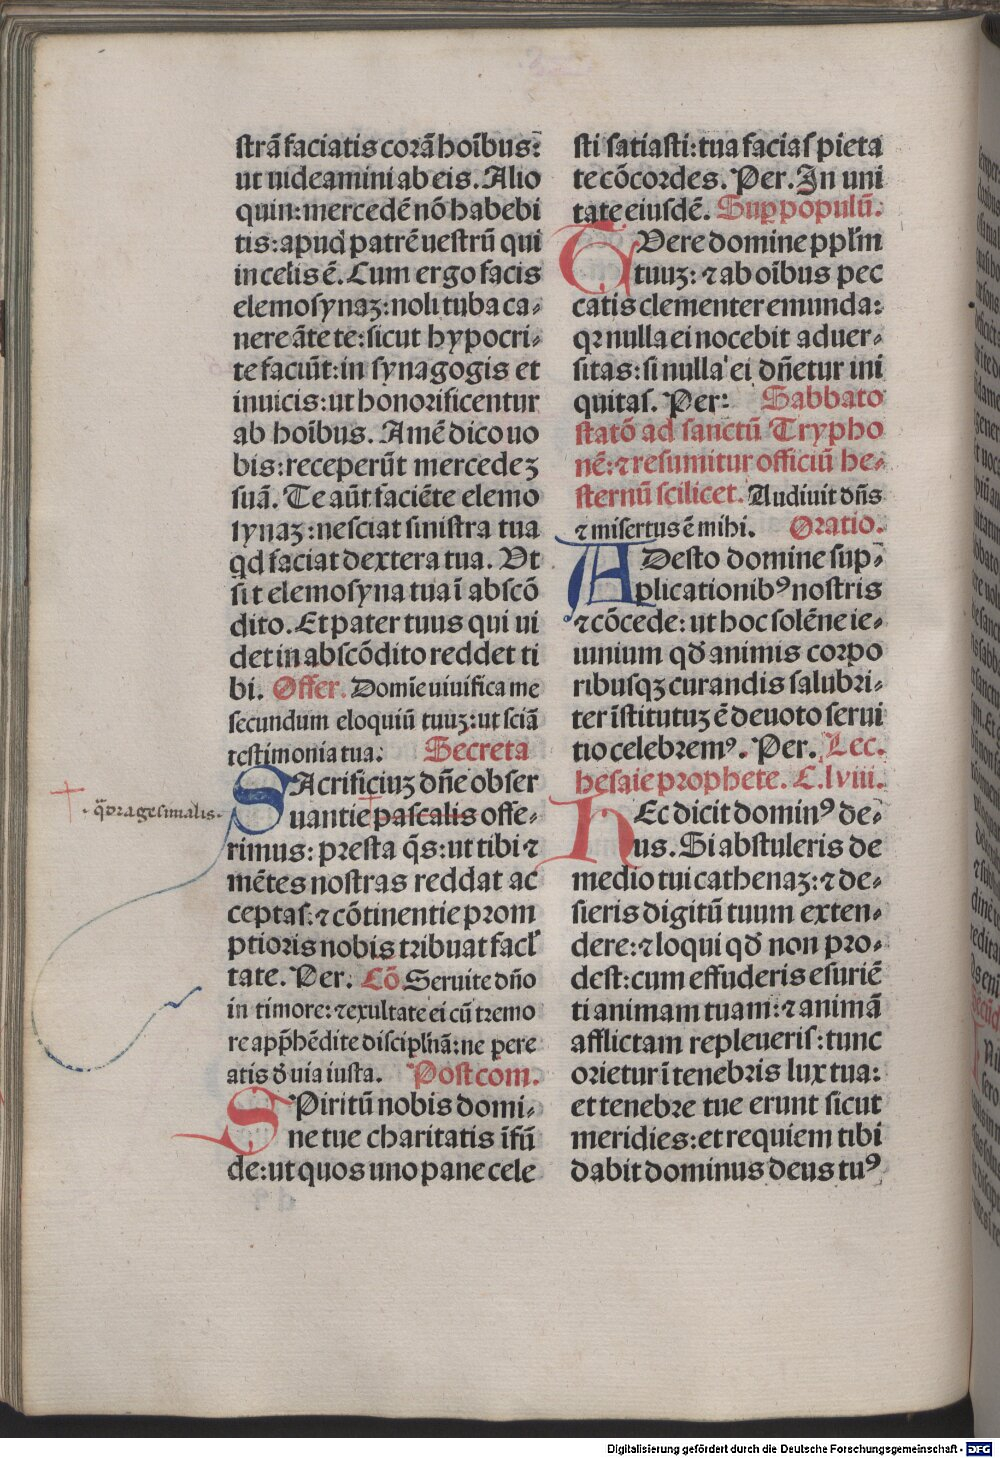 strā faciatis corā hoībus:
ut uideamini ab eis. Alio
quin: mercedē nō habebi
tis: apud patrē uestrū qui
in celis ē. Cum ergo facis
elemosynaʒ: noli tuba ca-
nere āte te: sicut hypocri-
te faciūt: in synagogis et
in uicis: ut honorificentur
ab hoībus. Amē dico uo
bis: receperūt mercedeʒ
suā. Te aūt faciēte elemo
synaʒ: nesciat sinistra tua
qd faciat dextera tua. Ut
sit elemosyna tua ī abscō
dito. Et pater tuus qui ui
det in abscōdito reddet ti
bi. Offer. Domīe uiuifica me
secundum eloquiū tuuʒ: ut sciā
testimonia tua: Secreta
SAcrificiuʒ dn̄e obser
uantie pascalis offe-
·q̄dragesimalis·
rimus: presta q̄s: ut tibi ⁊
mētes nostras reddat ac
ceptas: ⁊ cōtinentie prom
ptioris nobis tribuat facl'
tate. Per. Cō Seruite dn̄o
in timore: ⁊ exultate ei cū tremo
re app̄hēdite disciplīnā: ne pere
atis d' uia iusta. Postcom.
SPiritū nobis domi-
ne tue charitatis īfū
de: ut quos uno pane cele
sti satiasti: tua facias pieta
te cōcordes. Per. In uni
tate eiusdē. Sup populū.
TUere domine pplīm
tuuʒ: ⁊ ab oībus pec
catis clementer emunda:
qꝛ nulla ei nocebit aduer-
sitas: si nulla ei dn̄etur ini
quitas. Per: Sabbato
statō ad sanctū Trypho
nē: ⁊ resumitur officiū he-
sternū scilicet. Audiuit dn̄s
⁊ misertus ē mihi. Oratio.
ADesto domine sup-
plicationibꝰ nostris
⁊ cōcede: ut hoc solēne ie-
iunium qd' animis corpo
ribusqʒ curandis salubri-
ter īstitutuʒ ē deuoto serui
tio celebremꝰ. Per. Lec.
hesaie prophete. C. lviii.
HEc dicit dominꝰ de-
us. Si abstuleris de
medio tui cathenaʒ: ⁊ de-
sieris digitū tuum exten-
dere: ⁊ loqui qd' non pro-
dest: cum effuderis esuriē
ti animam tuam: ⁊ animā
afflictam repleueris: tunc
orietur ī tenebris lux tua:
et tenebre tue erunt sicut
meridies: et requiem tibi
dabit dominus deus tuꝰ
Digitalisierung gefördert durch die Deutsche Forschungsgemeinschaft - DFG